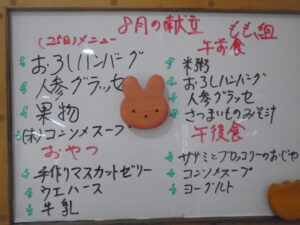 8月の献立
(25日)メニュー
おろしハンバーグ
人参グラッセ
果物
(木)コンソメスープ
おやつ
手作りマスカットゼリー
ウエハース
牛乳
もも組
午前食
米粥
おろしハンバーグ
人参グラッセ
さつまいものみそ汁
午後食
ササミとブロッコリーのおじや
コンソメスープ
ヨーグルト